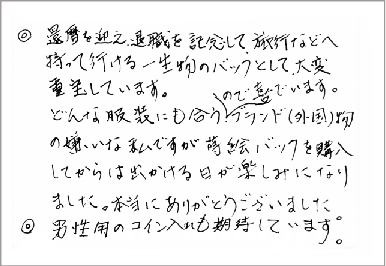 ◎ 還暦を迎え退職を記念して、旅行などへ
持って行ける一生物のバックとして、大変
重宝しています。
どんな服装にも合うので喜んでいます。ブランド(外国)物
の嫌いな私ですが蒔絵バックを購入
してからは出かける日が楽しみになり
ました。本当にありがとうございました
◎ 男性用のコイン入れも期待しています。